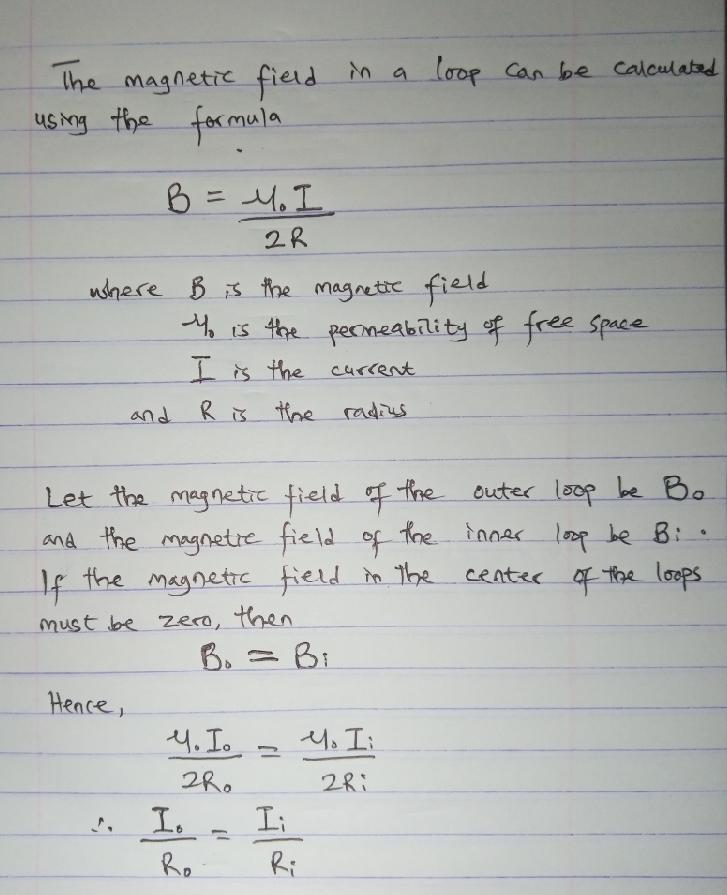 The magnetic field in a loop can be calculated
using the formula
B = μ₀I
2R
where B is the magnetic field
μ₀ is the permeability of free space
I is the current
and R is the radius
Let the magnetic field of the outer loop be B₀
and the magnetic field of the inner loop be Bi.
If the magnetic field in the center of the loops
must be zero, then
B₀ = Bi
Hence,
μ₀I₀ = μ₀Ii
2R₀ 2Ri
∴ I₀ = Ii
R₀ Ri